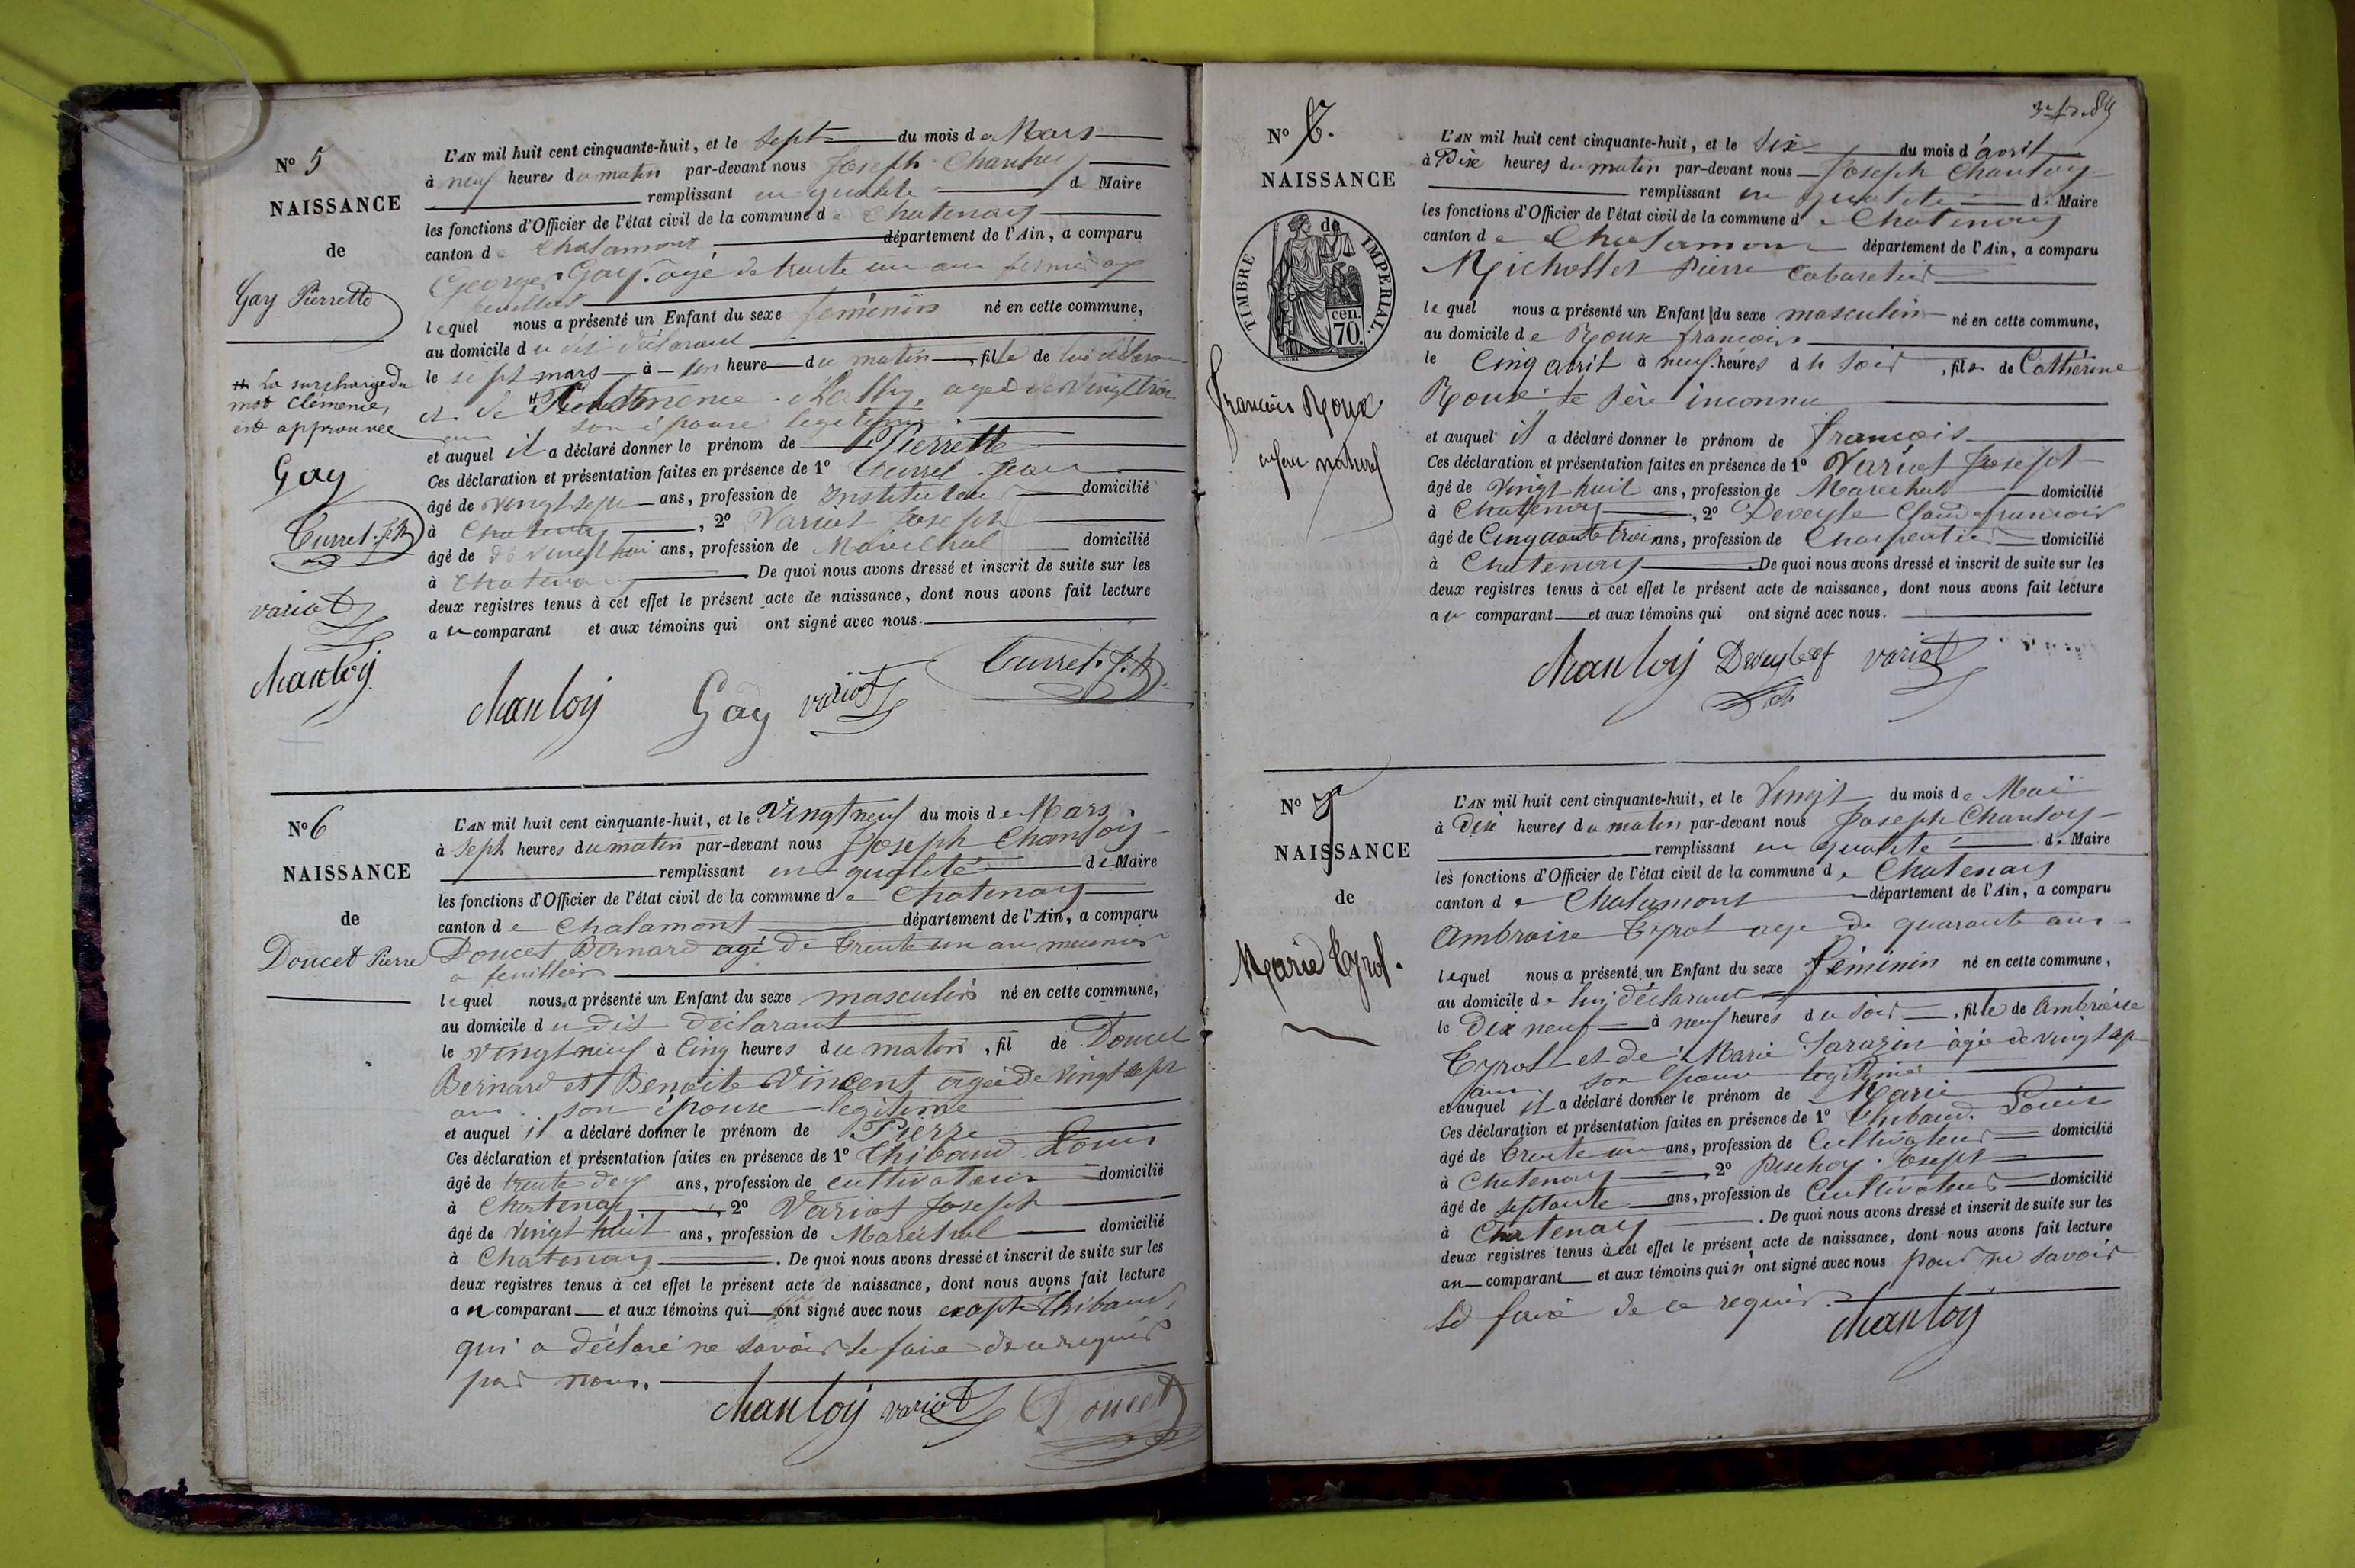 Nº 5
NAISSANCE
de
Gay Pierrette
# La surcharge du
mot Clémence,
est approuvée
Gay
Curret. J.B
variot
Chanloy
L'AN mil huit cent cinquante-huit, et le sept du mois de Mars
à neuf heures du matin par-devant nous Joseph Chanloy
remplissant en qualité de Maire
les fonctions d'Officier de l'état civil de la commune de Chatenay
canton de Chalamont département de l'Ain, a comparu
Georges Gay. agé de trente un ans
lequel nous a présenté un Enfant du sexe féminin né en cette commune,
au domicile du dit déclarant
le sept mars à un heure du matin, fille de lui déclarant
et de Clémence agée de vingt trois
ans son épouse légitime
et auquel il a déclaré donner le prénom de Pierrette
Ces déclaration et présentation faites en présence de 1º Curret Jean
âgé de vingt sept ans, profession de Instituteur domicilié
à Chatenay, 2º Variot Joseph
âgé de vingt huit ans, profession de Maréchal domicilié
à Chatenay. De quoi nous avons dressé et inscrit de suite sur les
deux registres tenus à cet effet le présent acte de naissance, dont nous avons fait lecture
au comparant et aux témoins qui ont signé avec nous.
Chanloy Gay variot Curret. J.B
Nº 6
NAISSANCE
de
Doucet Pierre
L'AN mil huit cent cinquante-huit, et le Vingt neuf du mois de Mars
à sept heures du matin par-devant nous Joseph Chanloy
remplissant en qualité de Maire
les fonctions d'Officier de l'état civil de la commune de Chatenay
canton de Chalamont département de l'Ain, a comparu
Doucet Bernard agé de trente un an meunier
a
lequel nous a présenté un Enfant du sexe masculin né en cette commune,
au domicile du dit déclarant
le vingt neuf à cinq heures du matin, fil de Doucet
Bernard et Benoite Vincent agée de vingt sept
ans son épouse légitime
et auquel il a déclaré donner le prénom de Pierre
Ces déclaration et présentation faites en présence de 1º Thibaud Louis
âgé de trente deux ans, profession de cultivateur domicilié
à Chatenay, 2º Variot Joseph
âgé de vingt huit ans, profession de Maréchal domicilié
à Chatenay. De quoi nous avons dressé et inscrit de suite sur les
deux registres tenus à cet effet le présent acte de naissance, dont nous avons fait lecture
au comparant et aux témoins qui ont signé avec nous excepté Thibaud,
qui a déclaré ne savoir le faire de ce requis
par nous.
Chanloy variot Doucet
Nº
NAISSANCE
de
TIMBRE IMPERIAL.
cen.
70.
François Roux
enfant naturel
L'AN mil huit cent cinquante-huit, et le six du mois d'avril
à Dix heures du matin par-devant nous Joseph Chanloy
remplissant en qualité de Maire
les fonctions d'Officier de l'état civil de la commune de Chatenay
canton de Chalamont département de l'Ain, a comparu
Michollet Pierre Cabaretier
lequel nous a présenté un Enfant du sexe masculin né en cette commune,
au domicile de Roux françois
le cinq avril à neuf heures du soir, fils de Cathérine
Roux de père inconnu
et auquel il a déclaré donner le prénom de françois
Ces déclaration et présentation faites en présence de 1º Variot Joseph
âgé de Vingt huit ans, profession de Maréchal domicilié
à Chatenay, 2º Deveyle Claude françois
âgé de Cinquante trois ans, profession de Charpentier domicilié
à Chatenay De quoi nous avons dressé et inscrit de suite sur les
deux registres tenus à cet effet le présent acte de naissance, dont nous avons fait lecture
au comparant et aux témoins qui ont signé avec nous.
Chanloy variot
Nº
NAISSANCE
de
Marie Tyrol.
L'AN mil huit cent cinquante-huit, et le Vingt du mois de Mai
à Dix heures du matin par-devant nous Joseph Chanloy
remplissant en qualité de Maire
les fonctions d'Officier de l'état civil de la commune de Chatenay
canton de Chalamont département de l'Ain, a comparu
Ambroise Tyrol age de quarante ans
lequel nous a présenté un Enfant du sexe féminin né en cette commune,
au domicile de lui déclarant
le Dix neuf à neuf heures du soir, fille de Ambroise
Tyrol et de Marie Sarazin âgée de vingt sept
ans son épouse légitime
et auquel il a déclaré donner le prénom de Marie
Ces déclaration et présentation faites en présence de 1º Thibaud Louis
âgé de trente un ans, profession de Cultivateur domicilié
à Chatenay 2º Joseph
âgé de septante ans, profession de Cultivateur domicilié
à Chatenay. De quoi nous avons dressé et inscrit de suite sur les
deux registres tenus à cet effet le présent acte de naissance, dont nous avons fait lecture
au comparant et aux témoins qui n'ont signé avec nous pour ne savoir
le faire de ce requis.
Chanloy